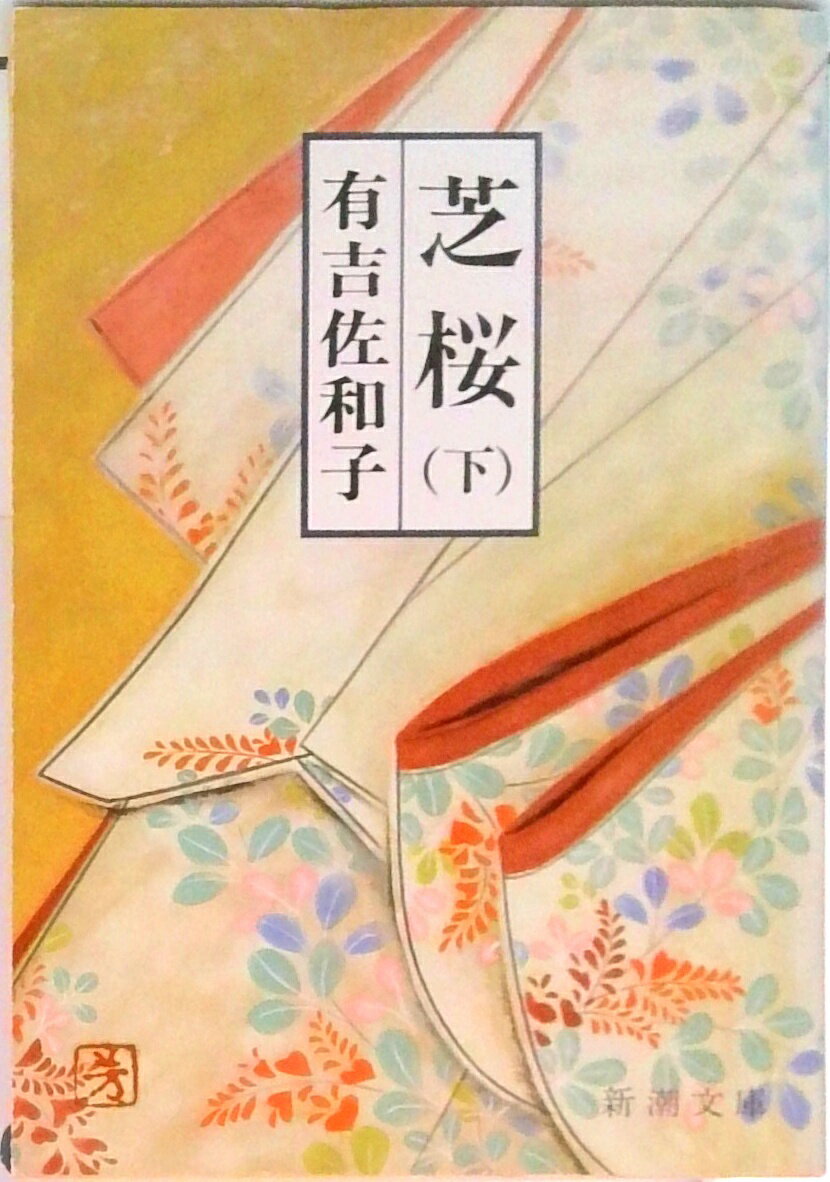 芝桜
(下)
有吉佐和子
新潮文庫
芳